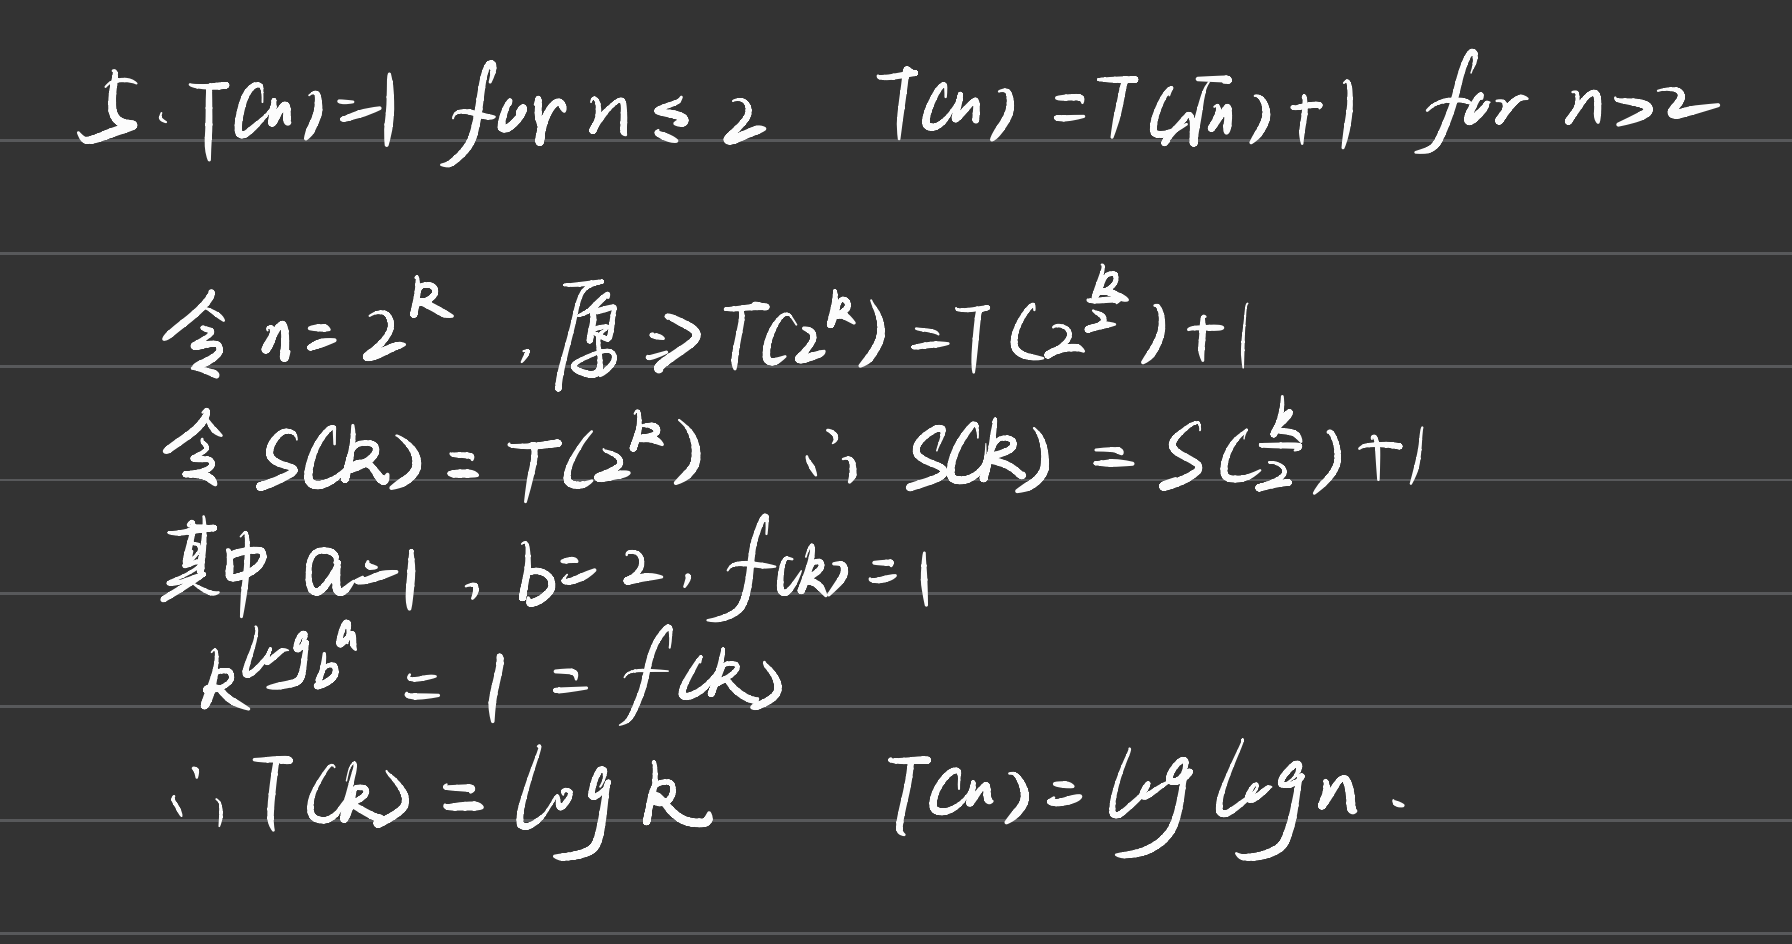 5. T(n)=1 for n ≤ 2 T(n) = T(√n)+1 for n>2
令 n = 2^k , 原式 ⇒ T(2^k) = T(2^(k/2)) + 1
令 S(k) = T(2^k) ∴ S(k) = S(k/2) + 1
其中 a=1 , b=2, f(k) = 1
k^(log_b^a) = 1 = f(k)
∴ T(k) = log k T(n) = log log n .